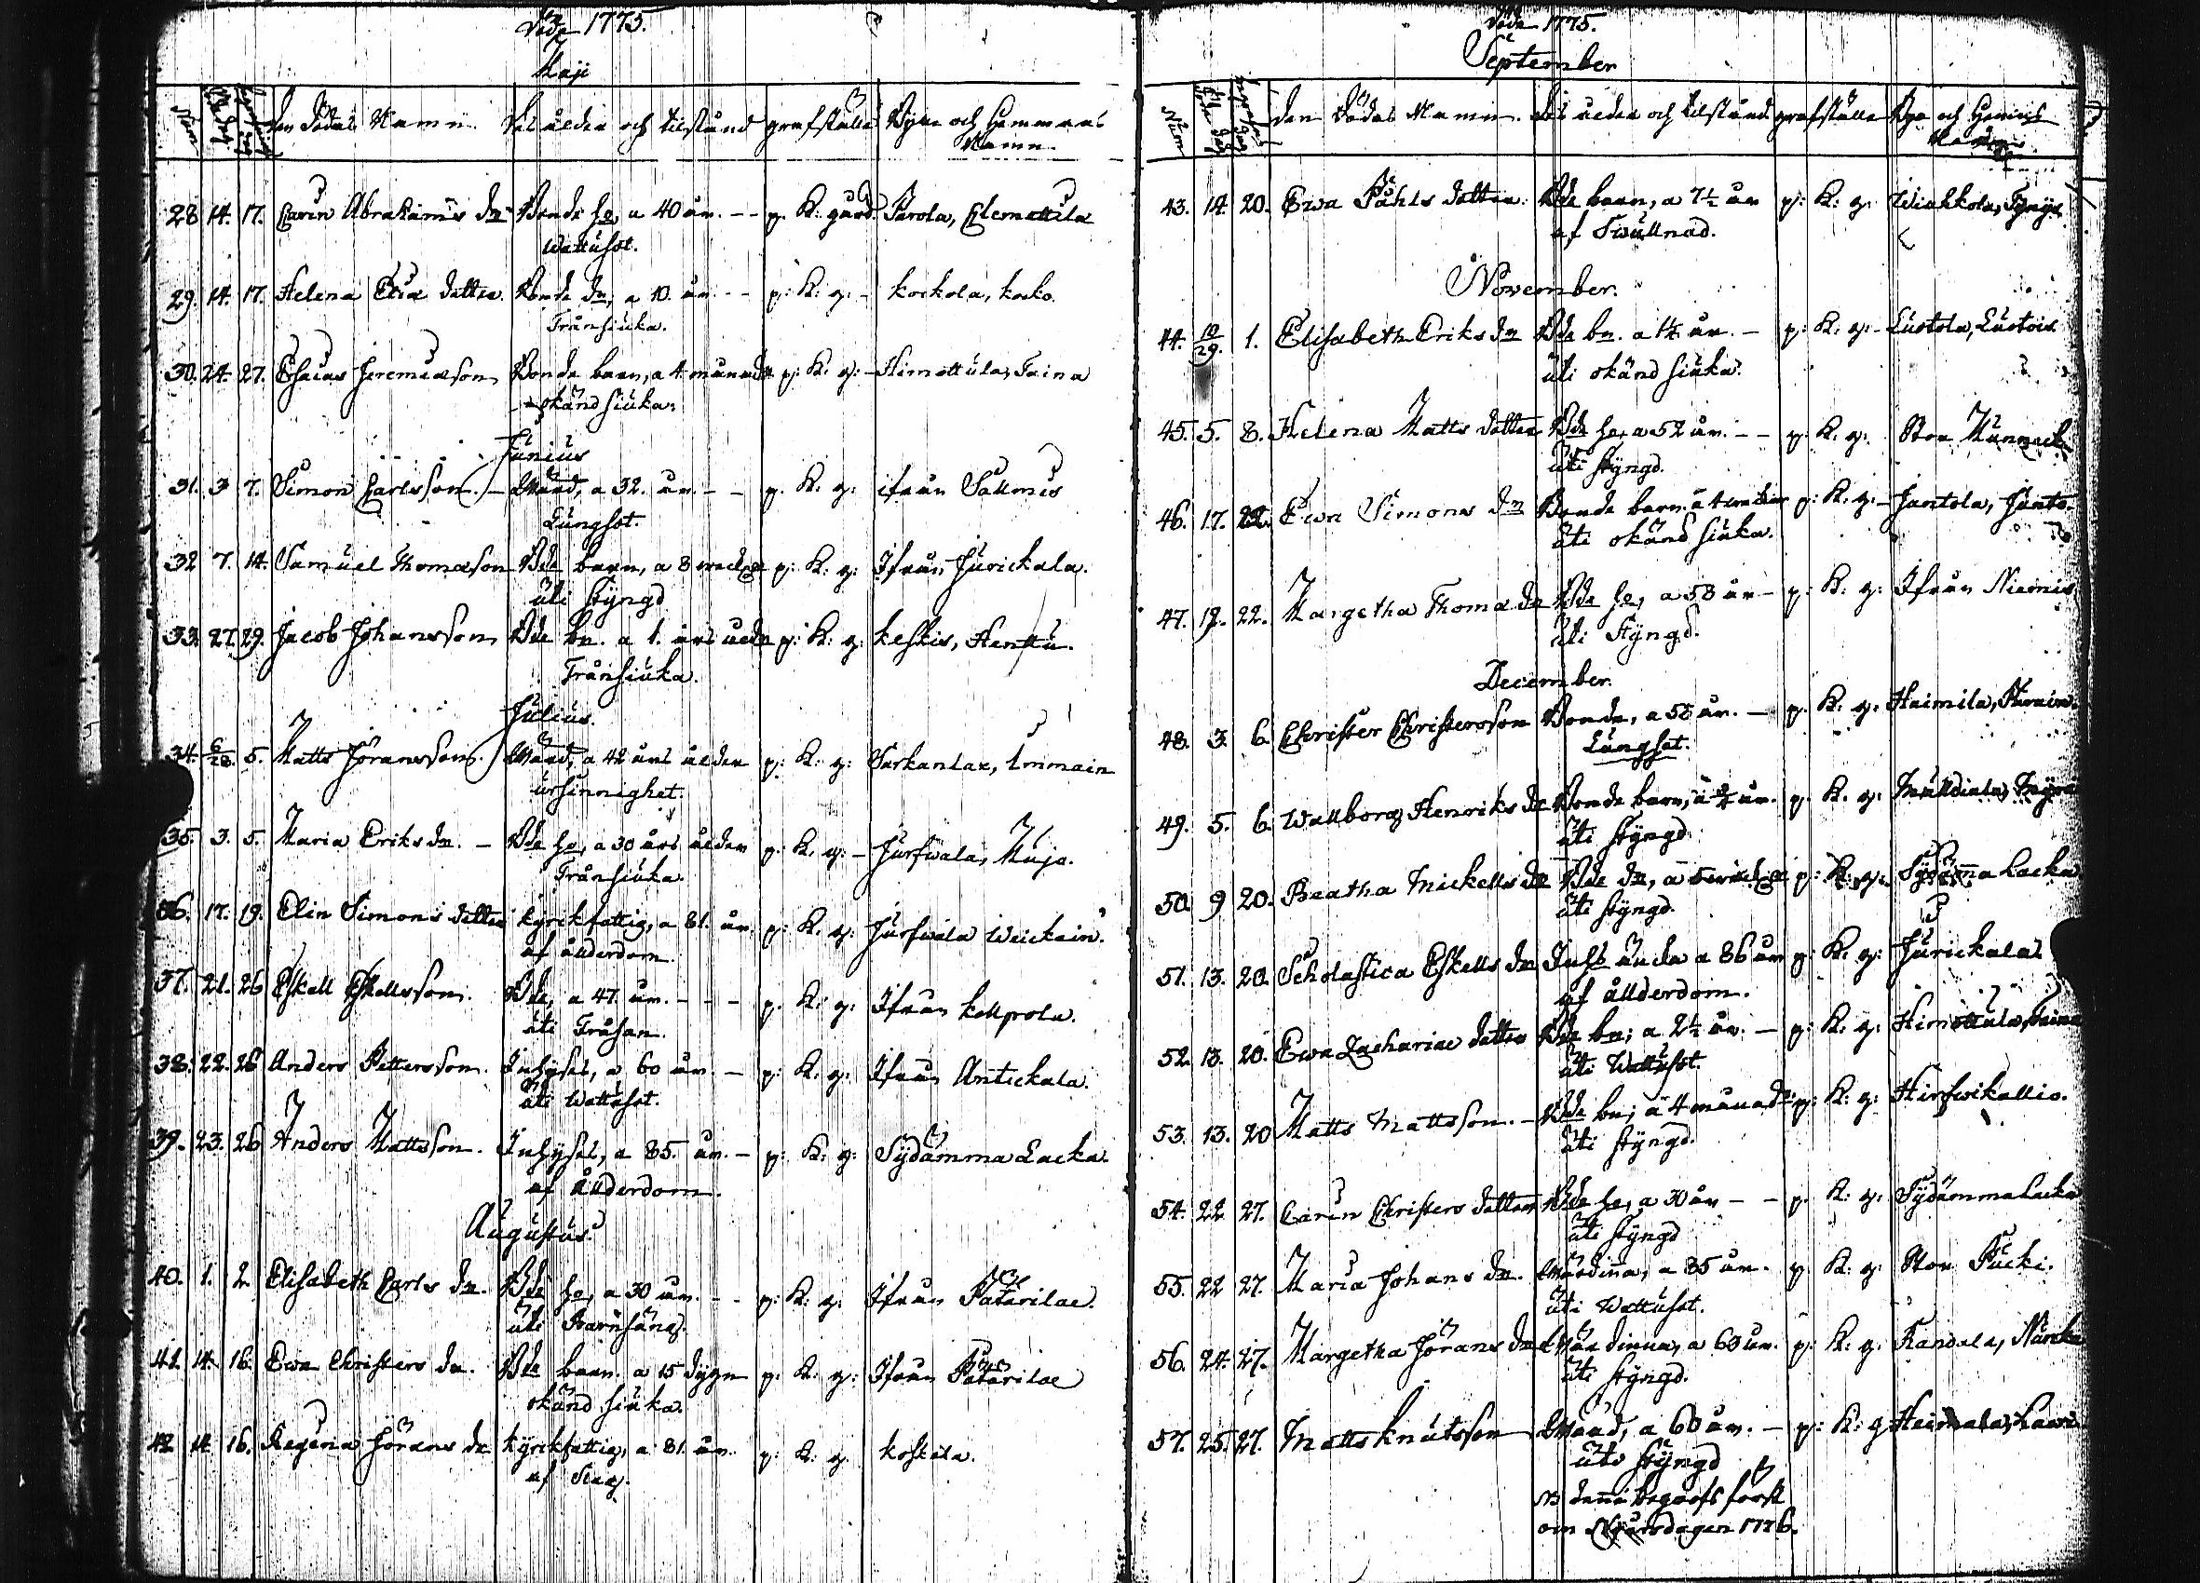 Döde 1775.
Maji
Num
Död. dag
Den Dödas Namn. Des ålder och tilstånd grafställe Byars och Hemmans
Namn.
28 14. 17. Carin Abrahams dr Bonde ho, a 40 år. -- p. K: gård. Parola, Clemettila
Wattusot.
29. 14. 17. Helena Esia dotter. Bonde dr, a 10. år. -- p: K: g: - Korkola, Korko.
Trånsiuka.
30. 24. 27. Esaias Jeremiæson Bonde barn, a 4 månader p: K: g: - Himottula, Taina
okänd siuka.
Junius
31. 3 7. Simon Carlsson. - Månd, a 32. år. -- p. K: g: ifrån Sallmis
Lungsot.
32 7. 14. Samuel Thomasson Bde barn, a 8 weckor p: K: g: Ifrån Jurickala.
uti styngd
33. 27. 29. Jacob Johansson Bde bn. a 1. års ålder p: K: g: Keskis, Henttu.
Trånsiuka.
Julius.
34. 6/28. 5. Matts Jöransson. Månd, a 42 års ålder p: K: g: Sarkanlax, Immain
ursinnighet.
35. 3. 5. Maria Eriks dr. - Bde ho, a 30 års ålder p: K: g: - Jurfwala, Mujo.
Trånsiuka.
36. 17. 19. Elin Simons dotter kyrckfattig, a 81. år. p: K. g: Jurfwala Weickain.
af ållderdom.
37. 21. 26 Eskell Eskellsson. Bde, a 47. år. - - - p: K: g: Ifrån Kellprola.
uti Tråsan.
38. 22. 26 Anders Pettersson. Inhyses, a 60 år. - p: K: g: Ifrån Antickala.
uti Wattusot.
39. 23. 26 Anders Mattsson. Inhyses, a 85. år. - p: K: g: Sydämma Lacka.
af ållderdom.
Augustus
40. 1. 2. Elisabeth Carls dr. Bde ho, a 30 år. -- p: K: g: Ifrån Patarilac.
uti Barnsäng.
41. 14. 16. Ewa Christers dr. Bde barn. a 15 dygn p: K: g: Ifrån Patarilac
okänd siuka.
42. 14. 16. Regina Jörans dr kyrckfattig, a 81. år. p: K: g. Koskela.
af Slag.
Döde 1775.
September
Num
Den Dödas Namn. Des ålder och tilstånd grafställe Byar och Hemans
Namn.
43. 14. 20. Ewa Påhls dotter. Bde barn, a 7½ år p: K: g: Wiahkola,
af Swullnad.
November.
44. 10/29. 1. Elisabeth Eriks dr Bde bn. a 1¼ år. - p: K: g: - Lustola, Lustois
uti okänd siuka.
45. 5. 8. Helena Matts dotter Bde ho, a 52 år. -- p: K. g: Stor
uti styngd.
46. 17. 22. Ewa Simons dr Bonde barn. a 4 weckor p: K: g: - Juntola, Junto.
uti okänd siuka.
47. 19. 22. Margetha Thomæ dr Bde ho, a 58 år - p: K: g: Ifrån Niemis
uti Styngd.
December.
48. 3. 6. Christer Christersson Bonde, a 58 år. - p. K: g. Haimila,
Lungsot.
49. 5. 6. Wallborg Henriks dr Bonde barn, a ¾ år. p. K: g:
uti styngd.
50. 9 20. Beatha Mickells dr Bde dr, a 5 weckor p: K: g: Sydämma Lacka
uti styngd.
51. 13. 20. Scholastica Eskells dr Inhs Äncka a 86 år p: K: g: Jurickala.
af ållderdom.
52. 13. 20. Ewa Zachariæ dotter Bde bn; a 2½ år. - p: K: g: Himottula, Taina
uti Wattusot.
53. 13. 20 Matts Mattsson. - Bde bn; a 4 månader p: K: g: Hirfwikallio.
uti styngd.
54. 22 27. Carin Christers dotter Bde ho, a 30 år - - p. K: g: Sydämma Lacka
uti styngd
55. 22 27. Maria Johans dr. Wärdinna, a 85 år. p. K: g: Stor Pucki.
uti Wattusot.
56. 24. 27. Margetha Jörans dr Wärdinna, a 60 år. p: K: g: Kandala,
uti styngd.
57. 25. 27. Matts Knutsson Månd, a 60 år. - p: K: g Haimala,
uti styngd
NB denne begrofs först
om Nyårsdagen 1776.